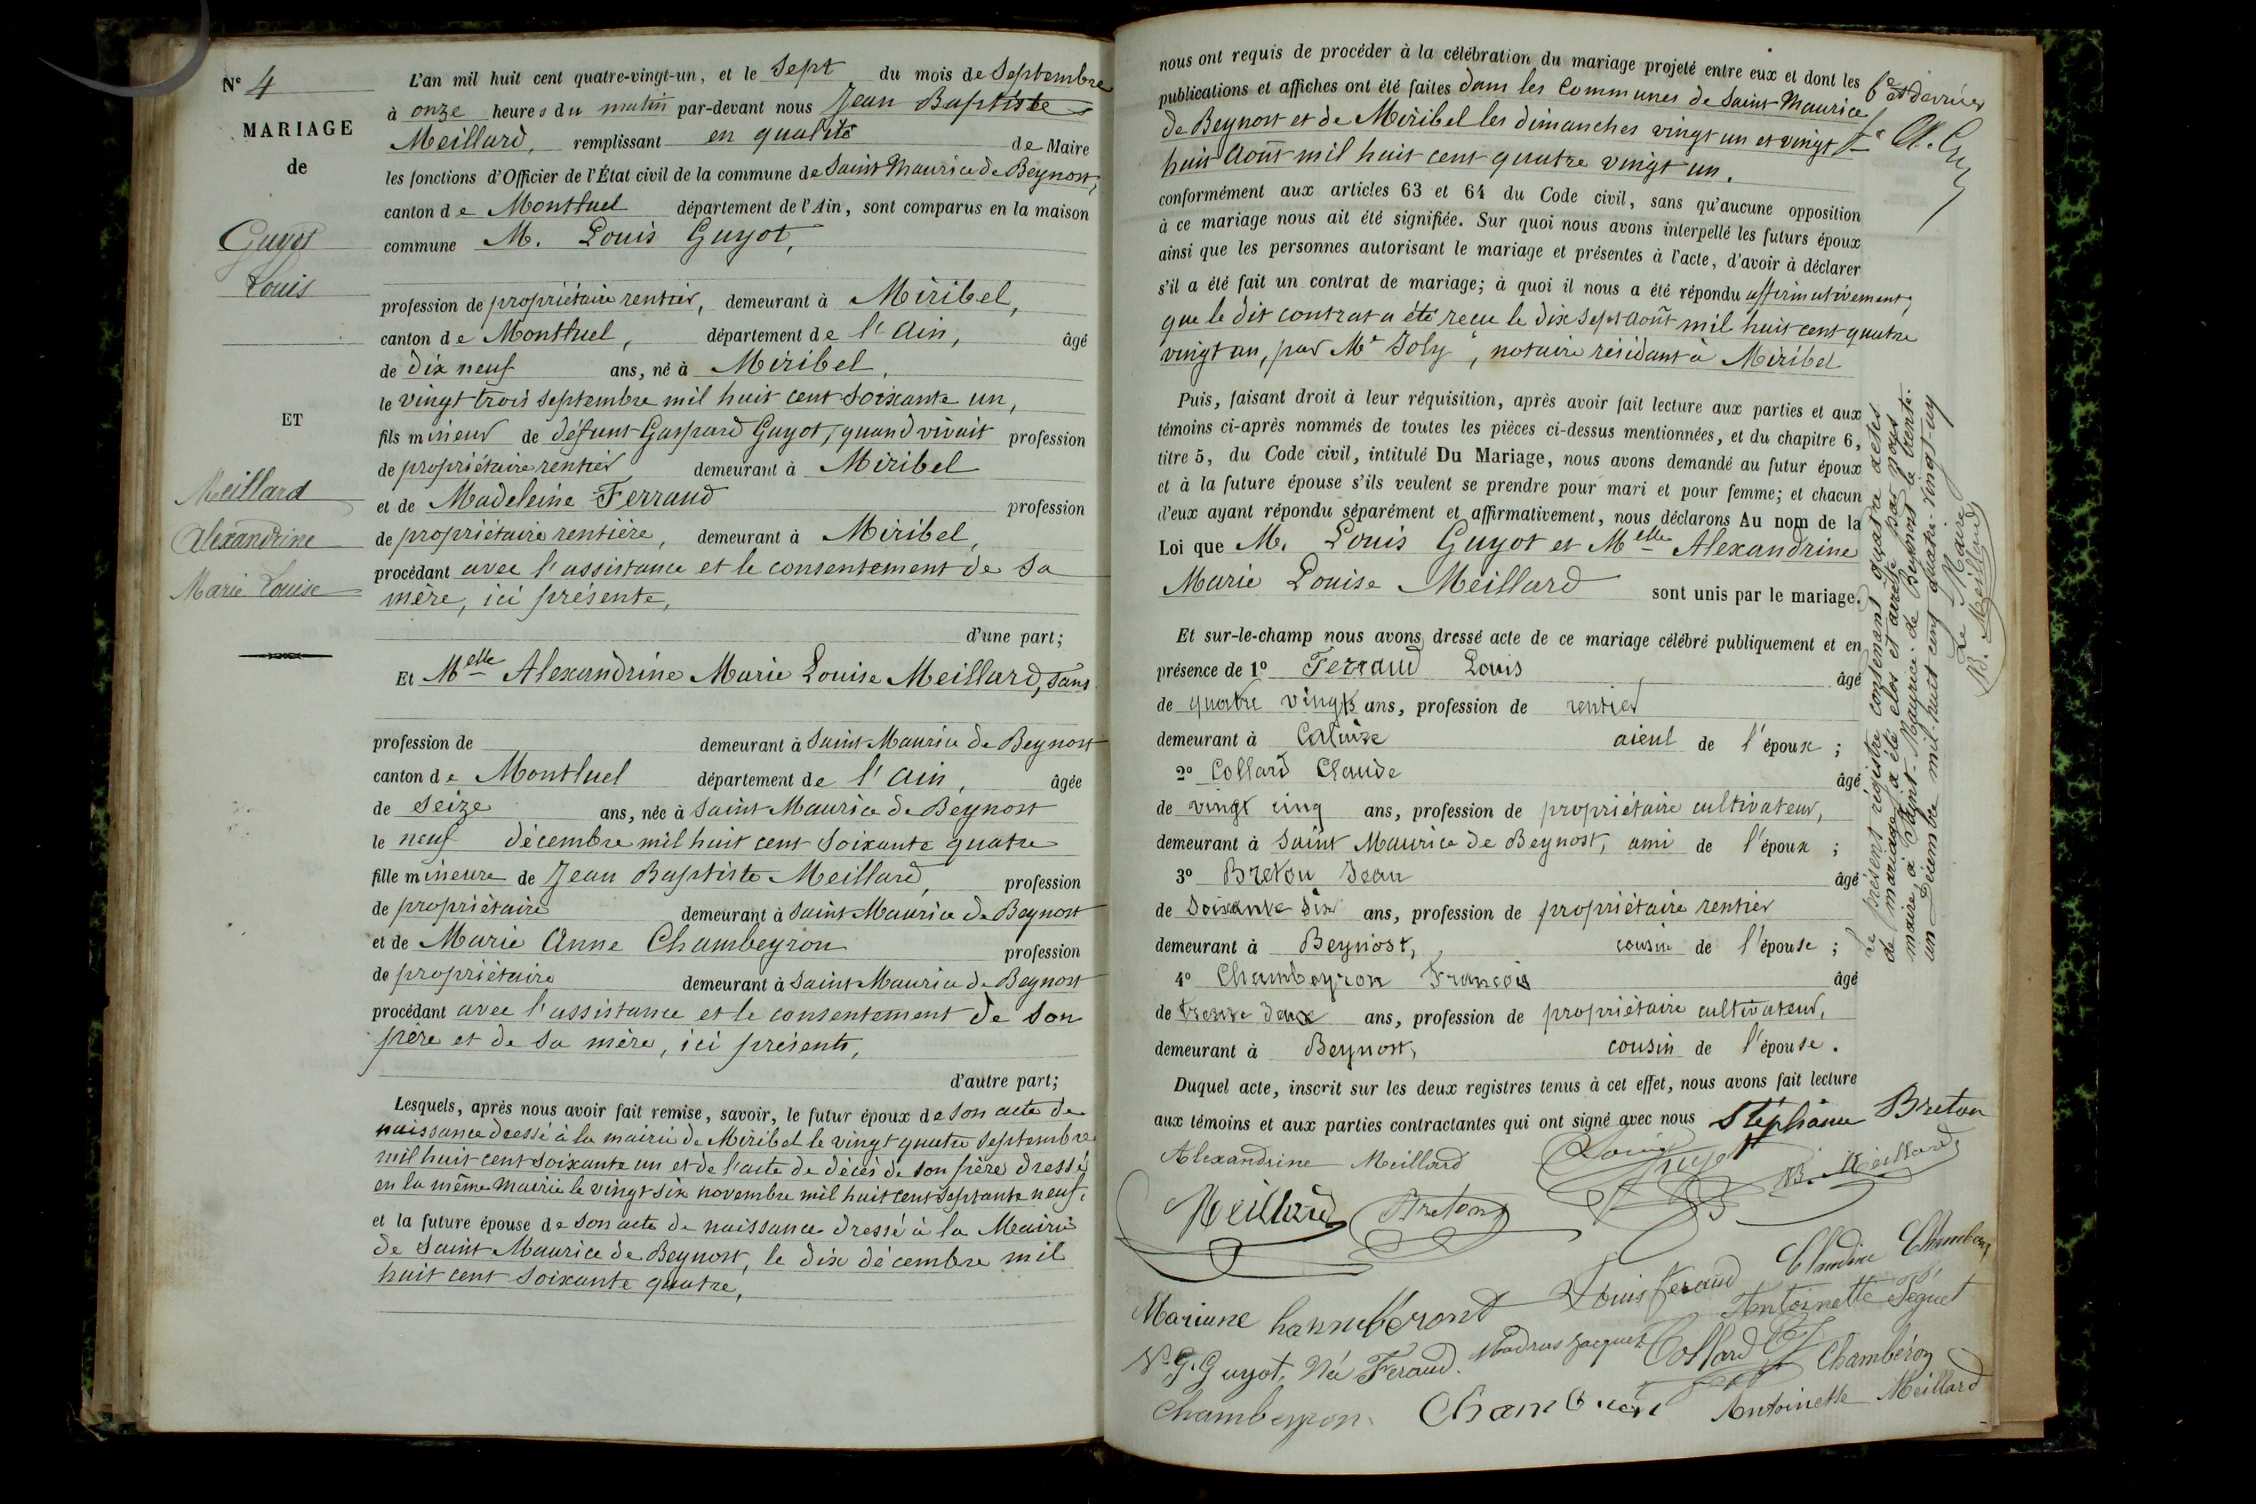 N° 4
MARIAGE
de
Guyot
Louis
ET
Meillard
Alexandrine
Marie Louise
L'an mil huit cent quatre-vingt-un, et le sept du mois de Septembre
à onze heures du matin par-devant nous Jean Baptiste
Meillard, remplissant en qualité de Maire
les fonctions d'Officier de l'État civil de la commune de Saint Maurice de Beynost,
canton de Montluel département de l'Ain, sont comparus en la maison
commune M. Louis Guyot,
profession de propriétaire rentier, demeurant à Miribel,
canton de Montluel, département de l'Ain, âgé
de dix neuf ans, né à Miribel,
le vingt trois septembre mil huit cent soixante un,
fils mineur de défunt Gaspard Guyot, quand vivait profession
de propriétaire rentier demeurant à Miribel
et de Madeleine Ferraud profession
de propriétaire rentière, demeurant à Miribel,
procédant avec l'assistance et le consentement de sa
mère, ici présente,
d'une part;
Et Melle Alexandrine Marie Louise Meillard, sans
profession de demeurant à Saint Maurice de Beynost
canton de Montluel département de l'Ain, âgée
de seize ans, née à Saint Maurice de Beynost
le neuf décembre mil huit cent soixante quatre
fille mineure de Jean Baptiste Meillard, profession
de propriétaire demeurant à Saint Maurice de Beynost
et de Marie Anne Chambeyron profession
de propriétaire demeurant à Saint Maurice de Beynost
procédant avec l'assistance et le consentement de son
père et de sa mère, ici présents,
d'autre part;
Lesquels, après nous avoir fait remise, savoir, le futur époux de son acte de
naissance dressé à la mairie de Miribel le vingt quatre septembre
mil huit cent soixante un et de l'acte de décès de son père dressé
en la même mairie le vingt six novembre mil huit cent septante neuf,
et la future épouse de son acte de naissance dressé à la Mairie
de Saint Maurice de Beynost, le dix décembre mil
huit cent soixante quatre,
nous ont requis de procéder à la célébration du mariage projeté entre eux et dont les
publications et affiches ont été faites dans les Communes de Saint Maurice
de Beynost et de Miribel les dimanches vingt un et vingt
huit Août mil huit cent quatre vingt un.
conformément aux articles 63 et 64 du Code civil, sans qu'aucune opposition
à ce mariage nous ait été signifiée. Sur quoi nous avons interpellé les futurs époux
ainsi que les personnes autorisant le mariage et présentes à l'acte, d'avoir à déclarer
s'il a été fait un contrat de mariage; à quoi il nous a été répondu affirmativement,
que le dit contrat a été reçu le dix sept Août mil huit cent quatre
vingt un, par Me Joly, notaire résidant à Miribel
Puis, faisant droit à leur réquisition, après avoir fait lecture aux parties et aux
témoins ci-après nommés de toutes les pièces ci-dessus mentionnées, et du chapitre 6,
titre 5, du Code civil, intitulé Du Mariage, nous avons demandé au futur époux
et à la future épouse s'ils veulent se prendre pour mari et pour femme; et chacun
d'eux ayant répondu séparément et affirmativement, nous déclarons Au nom de la
Loi que M. Louis Guyot et Melle Alexandrine
Marie Louise Meillard sont unis par le mariage.
Et sur-le-champ nous avons dressé acte de ce mariage célébré publiquement et en
présence de 1° Ferraud Louis âgé
de quatre vingts ans, profession de rentier
demeurant à Caluire aieul de l'époux ;
2° Collard Claude âgé
de vingt cinq ans, profession de propriétaire cultivateur,
demeurant à Saint Maurice de Beynost, ami de l'époux ;
3° Breton Jean âgé
de soixante six ans, profession de propriétaire rentier
demeurant à Beynost, cousin de l'épouse ;
4° Chambeyron François âgé
de trente deux ans, profession de propriétaire cultivateur,
demeurant à Beynost, cousin de l'épouse.
Duquel acte, inscrit sur les deux registres tenus à cet effet, nous avons fait lecture
aux témoins et aux parties contractantes qui ont signé avec nous Stéphanie Breton
Alexandrine Meillard Louis Guyot JB. Meillard
Meillard Breton
Claudine
Marianne Louis Feraud Antoinette Séguet
Ve G. Guyot, Née Feraud. Jacques Collard Chambéron
Chambeyron Antoinette Meillard
6e et dernier
Le présent registre contenant quatre actes
de mariage a été clos et arrêté par nous
maire, à Saint-Maurice-de Beynost le trente-
un Décembre mil-huit cent quatre-vingt-un
Le Maire
JB. Meillard